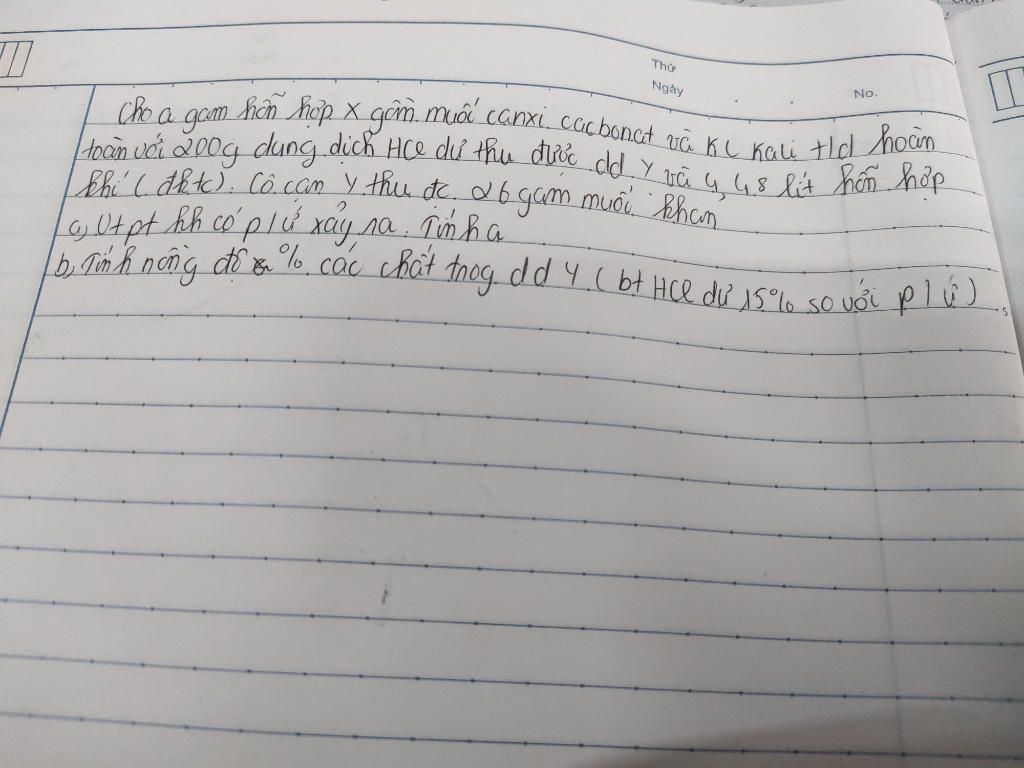 Thứ
Ngày
No.
Cho a gam hỗn hợp X gồm muối canxi cacbonat và KL Kali t/d hoàn
toàn với 200g dung dịch HCl dư thu được dd Y và 4,48 lít hỗn hợp
khí (đktc). Cô cạn Y thu đc 26 gam muối khan
a, Vtpt hh có p/ứ xảy ra. Tính a
b, Tính nồng độ % các chất trog dd Y (bt HCl dư 15% so với p/ứ)